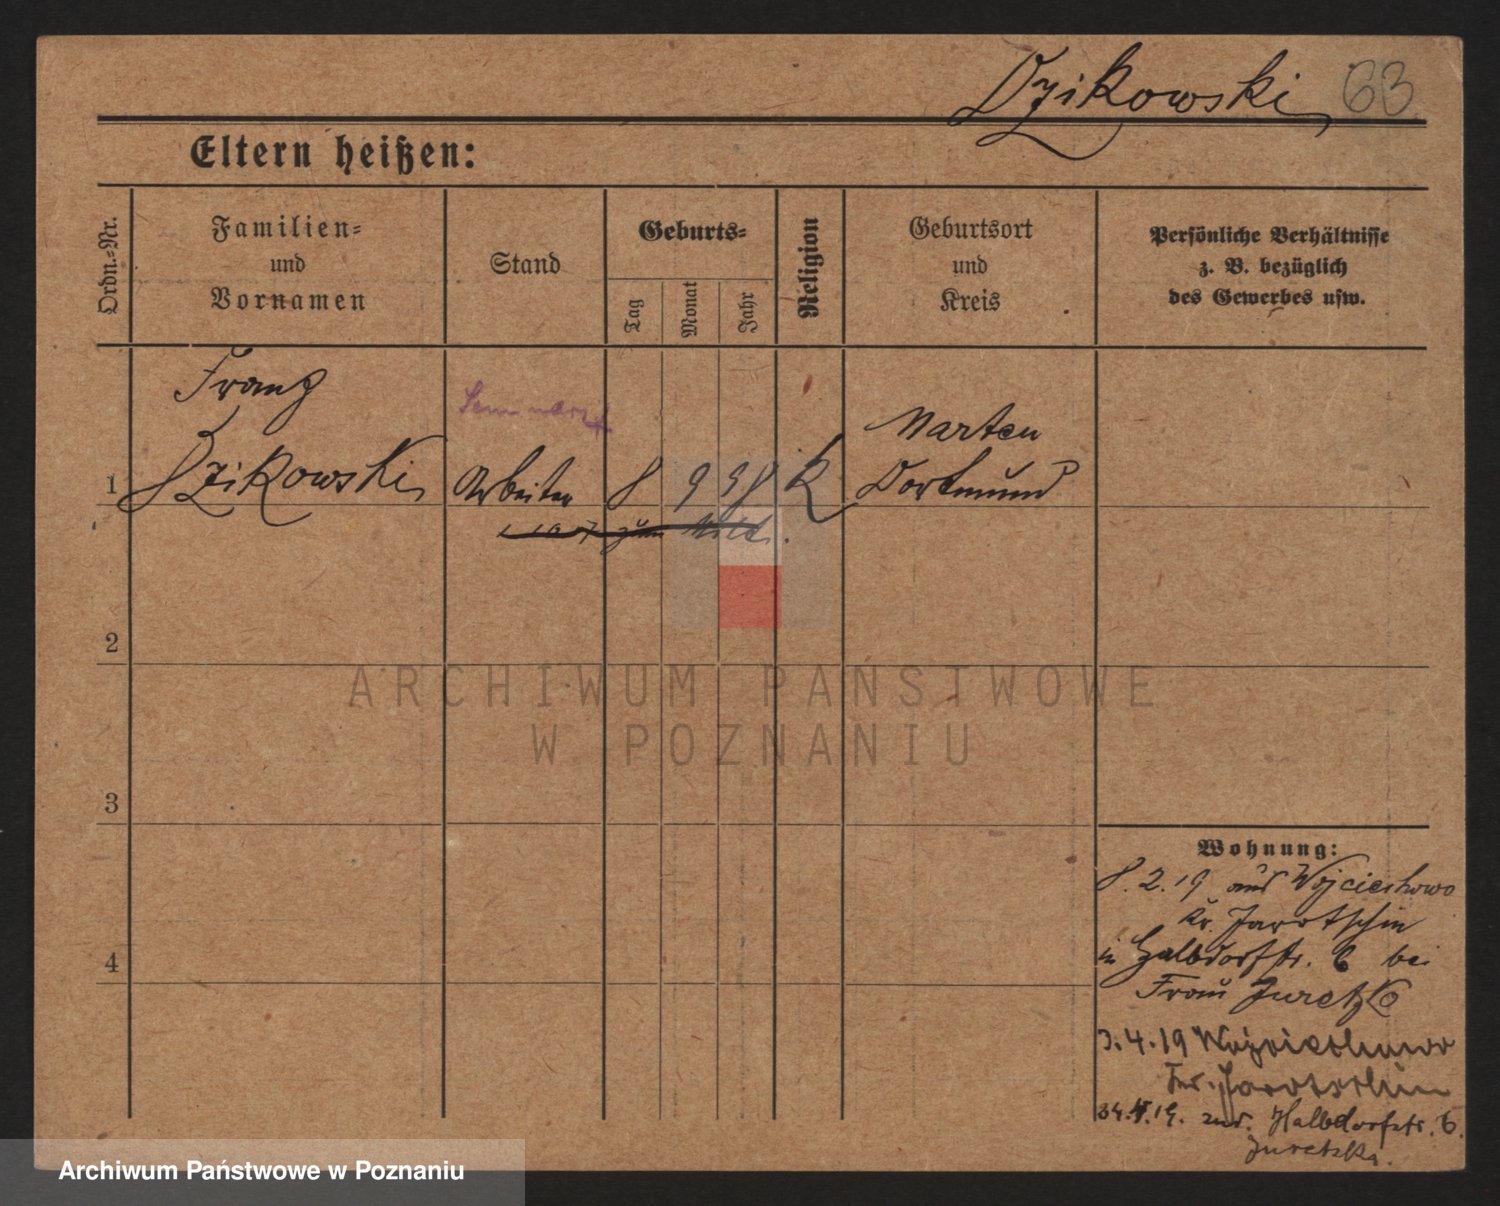 Dzikowski 63
Eltern heißen:
Ordn.-Nr.
Familien-
und
Vornamen
Stand
Geburts-
Tag
Monat
Jahr
Religion
Geburtsort
und
Kreis
Persönliche Verhältnisse
z. B. bezüglich
des Gewerbes usw.
Franz
Marten
1 Dzikowski Arbeiter 8 9 98 K Dortmund
2
3
4
Wohnung:
8.2.19 aus Wojciechowo
Kr. Jarotschin
in Halbdorfstr. 6 bei
Frau Juretzka
3.4.19 Wojciechowo
Kr. Jarotschin
24. .19. zur. Halbdorfstr. 6.
Juretzka.
ARCHIWUM PAŃSTWOWE
W POZNANIU
Archiwum Państwowe w Poznaniu